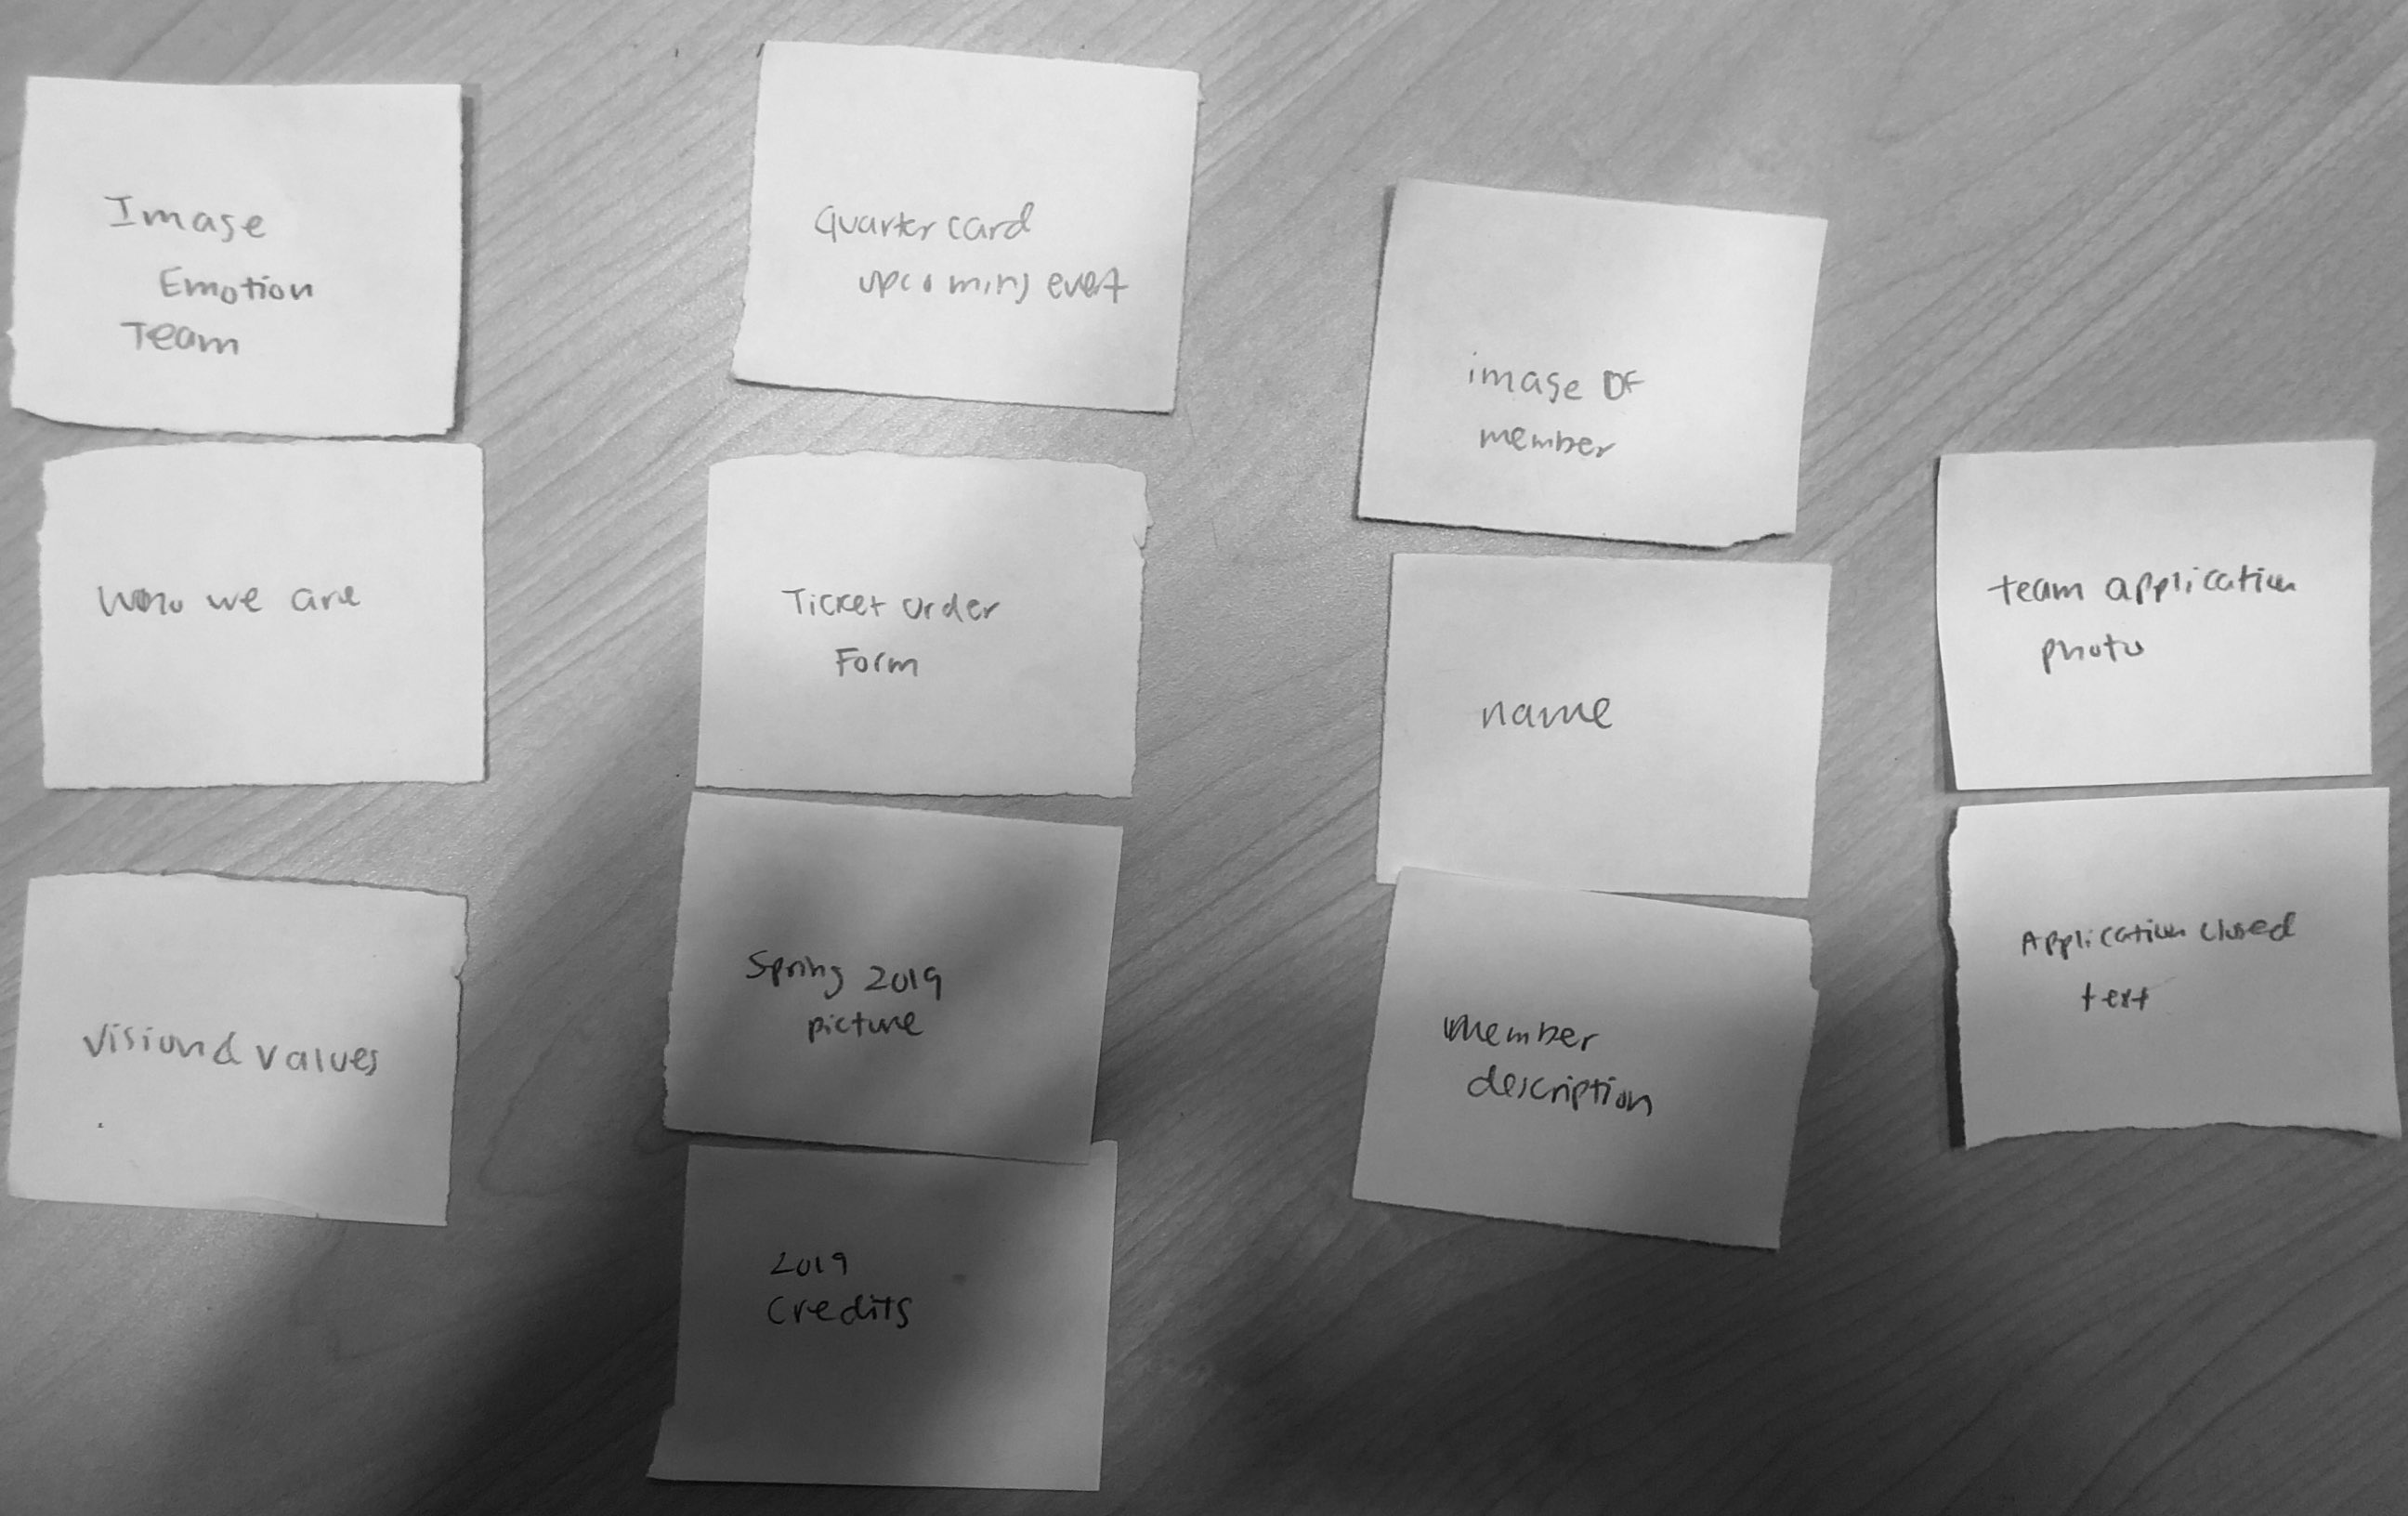 Image
Emotion
Team
Who we are
Vision & values
Quarter card
upcoming event
Ticket order
Form
Spring 2019
picture
2019
Credits
image OF
member
name
member
description
team application
photo
Application closed
text